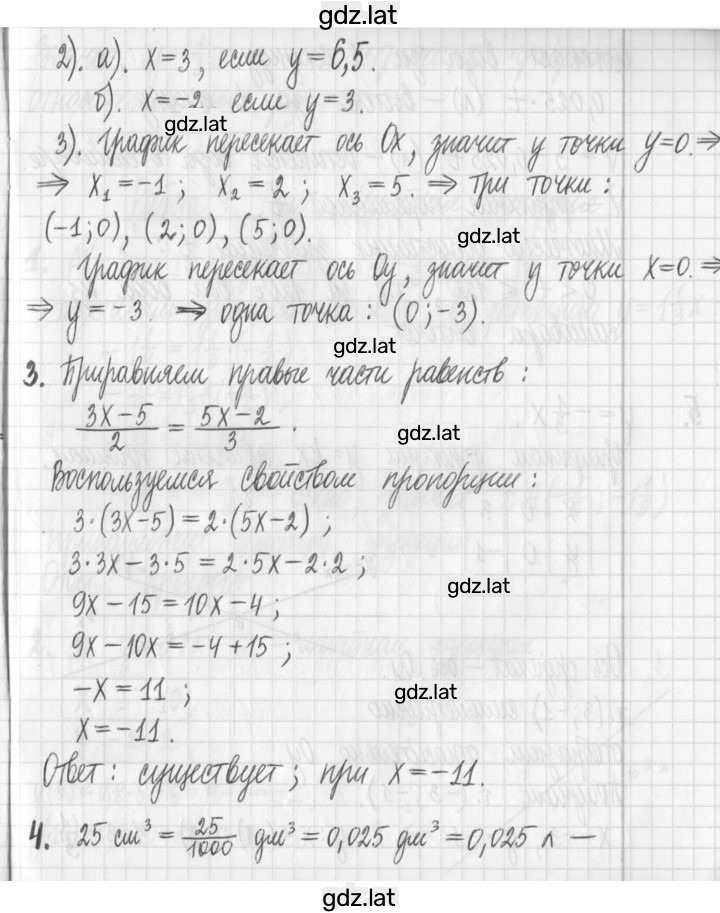 gdz.lat
2). а). x=3, если y=6,5.
б). x=-2 если y=3.
gdz.lat
3). График пересекает ось Ox, значит у точки y=0. ⇒
⇒ x₁=-1; x₂=2; x₃=5. ⇒ три точки:
(-1;0), (2;0), (5;0).
gdz.lat
График пересекает ось Oy, значит у точки x=0. ⇒
⇒ y=-3. ⇒ одна точка: (0;-3).
gdz.lat
3. Приравняем правые части равенств:
(3x-5)/2 = (5x-2)/3.
gdz.lat
Воспользуемся свойством пропорции:
3·(3x-5)=2·(5x-2);
3·3x-3·5=2·5x-2·2;
gdz.lat
9x-15=10x-4;
9x-10x=-4+15;
-x=11;
gdz.lat
x=-11.
Ответ: существует; при x=-11.
4. 25 см³ = 25/1000 дм³ = 0,025 дм³ = 0,025 л —
gdz.lat